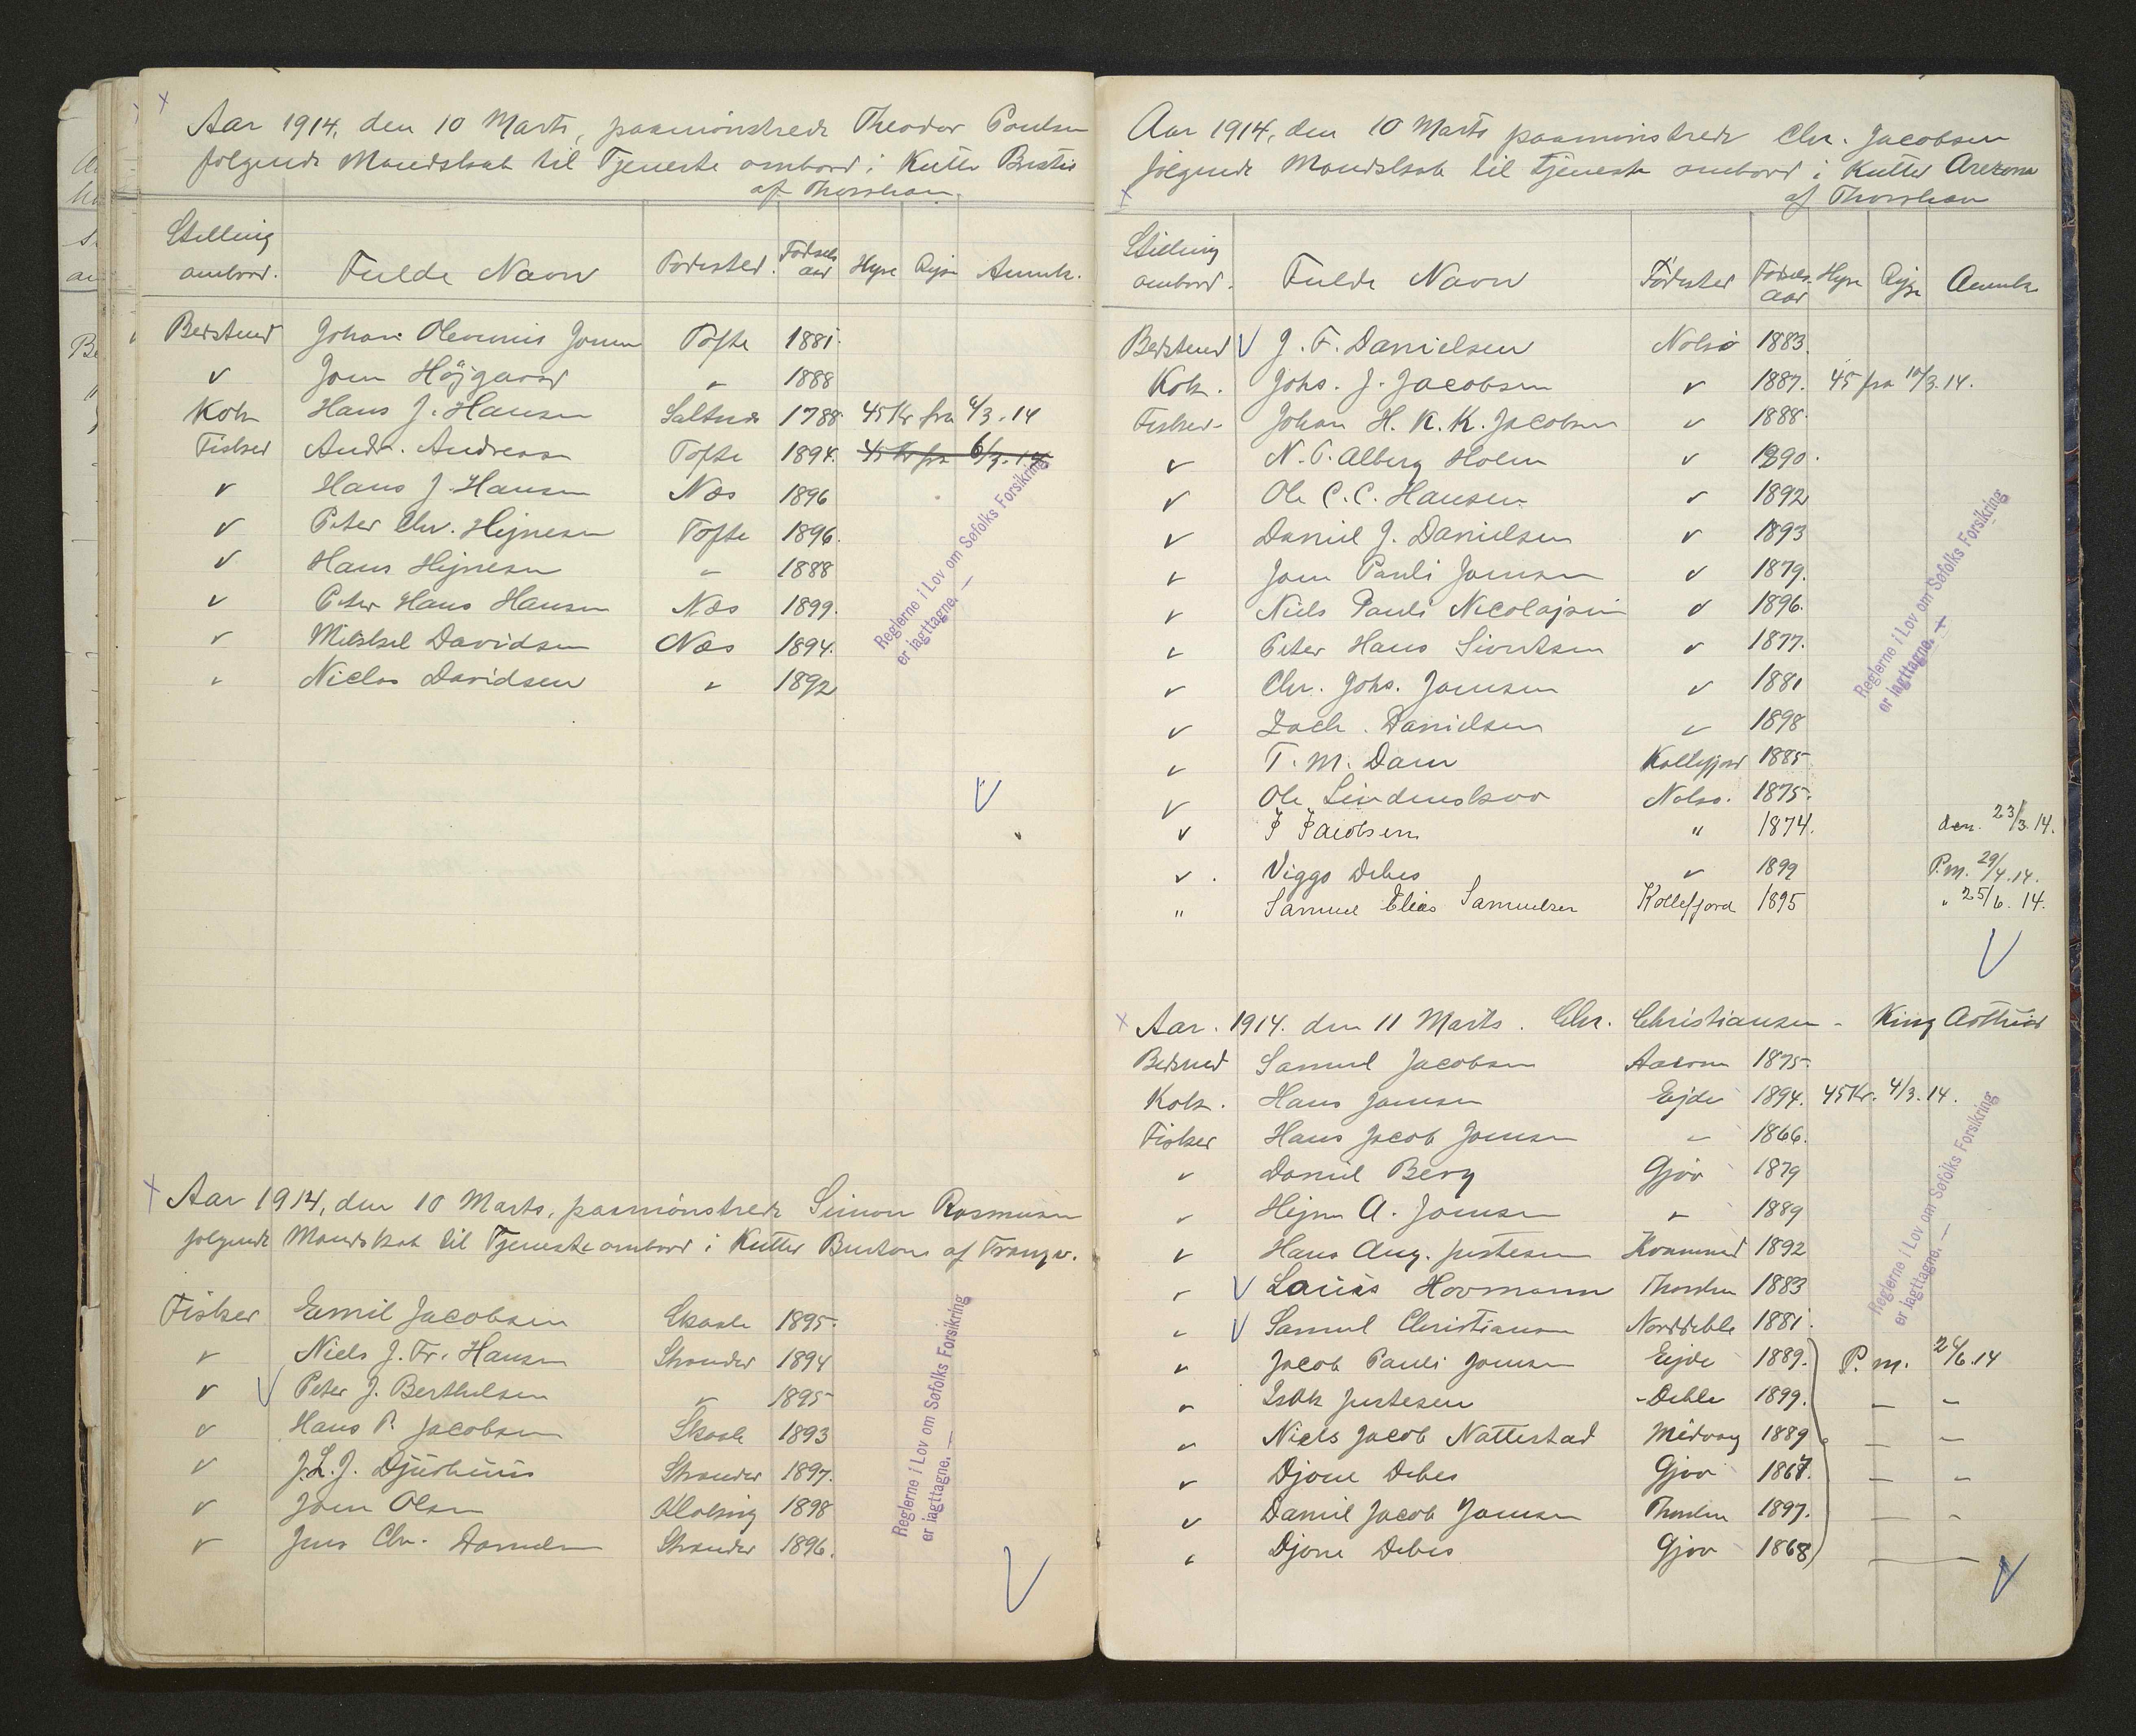 Aar 1914, den 10 Marts, paamönstrede Theodor Poulsen
følgende Mandskab til Tjeneste ombord i Kutter
af Thorshavn.
Stilling ombord. Fulde Navn Födested. Födsels aar Hyre Rejse Anmk.
Bedstmd Johan Olevinus Joensen Tofte 1881.
v Joen Höjgaard " 1888
Kok Hans J. Hansen Saltnes 1788 45 Kr fra 6/3. 14
Fisker Andr. Andreasen Tofte 1894. 45 Kr fra 6/3. 14
v Hans J. Hansen Næs 1896
v Peter Chr. Hejnesen Tofte 1896.
v Hans Hejnesen " 1888
v Peter Hans Hansen Næs 1899.
v Mikkel Davidsen Næs 1894.
" Niclas Davidsen " 1892
Reglerne i Lov om Søfolks Forsikring
er iagttagne. —
Aar 1914, den 10 Marts, paamönstrede Simon Rasmussen
følgende Mandskab til Tjeneste ombord i Kutter af
Fisker Emil Jacobsen Skaale 1895.
v Niels J. Fr. Hansen Strander 1894
v Peter J. Berthelsen v 1895
v Hans P. Jacobsen Skaale 1893
v J. L. J. Djurhuus Strander 1897.
v Joen Olsen 1898
v Jens Chr. Danielsen Strander 1896.
Reglerne i Lov om Søfolks Forsikring
er iagttagne. —
Aar 1914, den 10 Marts paamönstrede Chr. Jacobsen
følgende Mandskab til Tjeneste ombord i Kutter Arezona
af Thorshavn
Stilling ombord. Fulde Navn Födested Födsels aar Hyre Rejse Anmk
Bedstmd J. F. Danielsen Nolsö 1883.
Kok. Johs. J. Jacobsen v 1887. 45 fra 10/3. 14.
Fisker Johan H. K. K. Jacobsen v 1888.
v N. P. Alberg Holm v 1890.
v Ole C. C. Hansen v 1892
v Daniel J. Danielsen v 1893
v Joen Pauli Joensen v 1879.
v Niels Pauli Nicolajsen v 1896.
v Peter Hans Sivertsen v 1877.
v Chr. Johs. Joensen v 1881
v Zach. Danielsen v 1898
v T. M. Dam Kollefjord 1885
v Ole Lindenskov Nolsö. 1875.
v J Jacobsen " 1874. den. 23/3. 14.
v. Viggo Debes v 1899 P.m. 29/4. 14.
" Samuel Elias Samuelsen Kollefjord 1895 " 25/6. 14.
Reglerne i Lov om Søfolks Forsikring
er iagttagne. —
Aar. 1914. den 11 Marts. Chr. Christiansen - King Arthur
Bedstmd Samuel Jacobsen 1875.
Kok. Hans Joensen Ejde 1894. 45 Kr. 4/3. 14.
Fisker Hans Jacob Joensen " 1866.
v Daniel Berg Gjov 1879
v Hejne A. Joensen " 1889
v Hans Aug. Justesen Kvannesund 1892
v Louis Hovmann Thorshvn 1883
" Samuel Christiansen Norddeble 1881.
" Jacob Pauli Joensen Ejde 1889. P. m. 26/6. 14
" Isak Justesen -Deble 1899. — —
" Niels Jacob Nattestad Midvaag 1889 — —
v Djone Debes Gjov 1867. — —
v Daniel Jacob Joensen Thorshvn 1897. — —
" Djone Debes Gjov 1868 — —
Reglerne i Lov om Søfolks Forsikring
er iagttagne. —